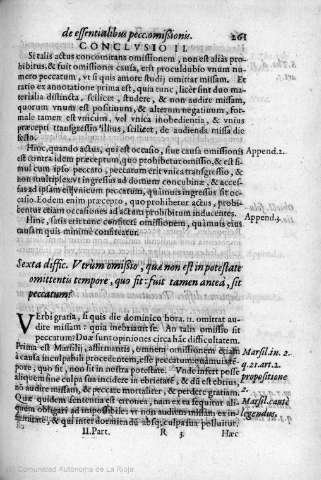 de essentialibus pecc. omissionis. 261
CONCLVSIO II.
Si talis actus concomitans omissionem, non est aliàs pro-
hibitus, & fuit omissionis causa, est proculdubio vnum nu-
mero peccatum, vt si quis amore studij omittat missam. Et
ratio ex annotatione prima est, quia tunc, licèt sint duo ma-
terialia distincta, scilicet, studere, & non audire missam,
quorum vnum est positiuum, & alterum negatiuum, for-
male tamen est vnicum, vel vnica inobedientia, & vnius
præcepti transgressio illius, scilicet, de audienda missa die
festo.
Hinc, quando actus, qui est occasio, siue causa omissionis Append. 1.
est contra idem præceptum, quo prohibetur omissio, & est si-
mul cum ipso peccato, peccatum erit vnica transgressio, &
non multiplex vt ingressus ad domum concubinæ, & acces-
sus ad ipsam est vnicum peccatum, quia ingressus sit oc-
casio. Eodem enim præcepto, quo prohibetur actus, prohi-
bentur etiam occasiones ad actum prohibitum inducentes.
Hinc, satis est tunc confiteri omissionem, quin eius Append.
causam quis minimè confiteatur.
Sexta diffic. Vtrum omissio, quæ non est in potestate
omittentis tempore, quo sit: fuit tamen antea, sit
peccatum?
Verbi gratia, si quis die dominico hora. 11. omittat au-
dire missam: quia inebriatus est. An talis omissio sit
peccatum? Duæ sunt opiniones circa hāc difficultatem.
Prima est Marsilij, affirmantis, omnem omissionem etiam Marsil. in. 2.
à causa inculpabili procedentem, esse peccatum eo q. 21. art. 2.
pro quo sit, non sit in nostra potestate. Vnde infert posse propositione
aliquem sine culpa sua incidere in ebrietatē, & dū est ebrius, 2.
nō audire missam, & peccare mortaliter, & perdere gratiam. Marsil. cautè
Quæ quidem sententia est erronea, nam ex ea sequitur ali- legendus.
quem obligari ad impossibile: vt non audiens missam ex in-
firmitate, & qui interdormitandum absque culpa sua polluitur.
II. Part. R 3 Hæc
Comunidad Autónoma de La Rioja